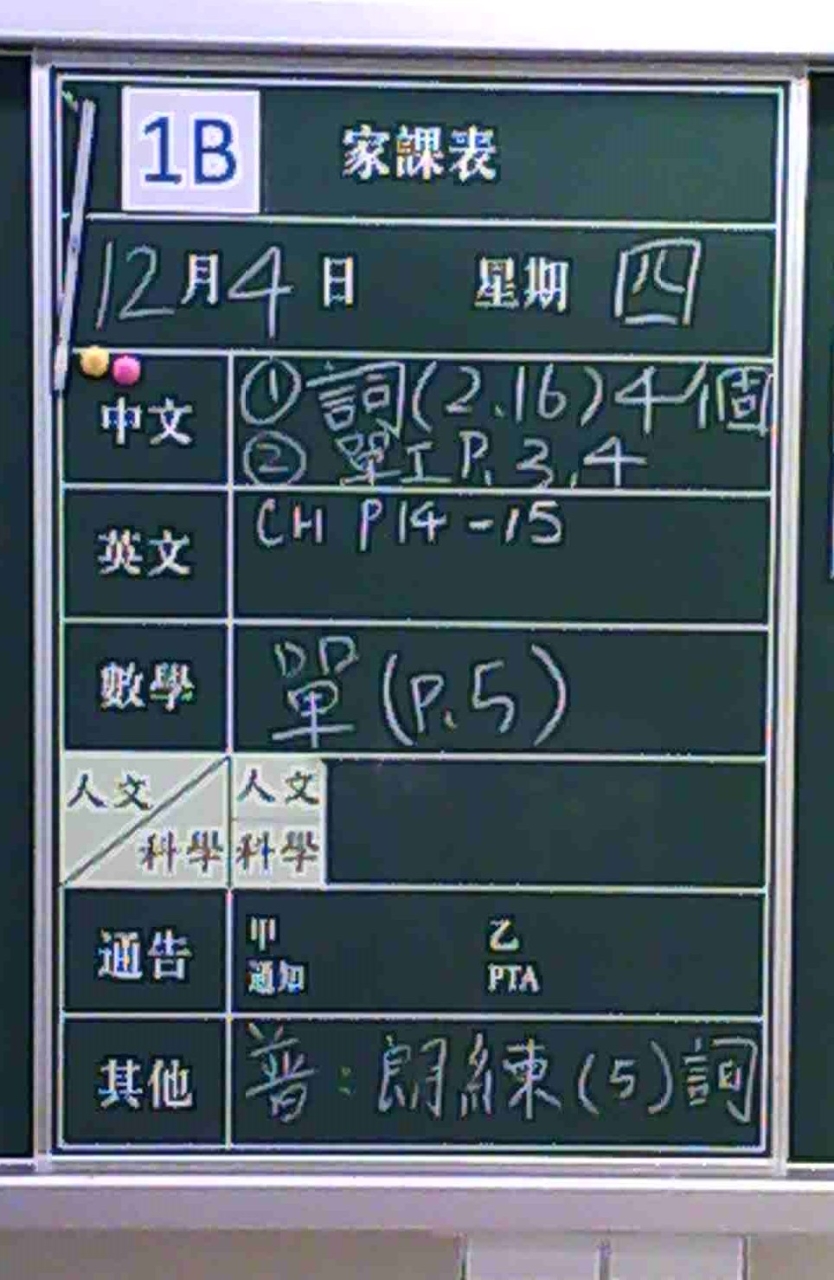 1B 家課表
12月4日 星期 四
中文 ① 詞(2.16)4個
② 單工P.3,4
英文 CH P14-15
數學 單(P.5)
人文 人文
科學 科學
通告 甲 乙
通知 PTA
其他 普:朗練(5)詞